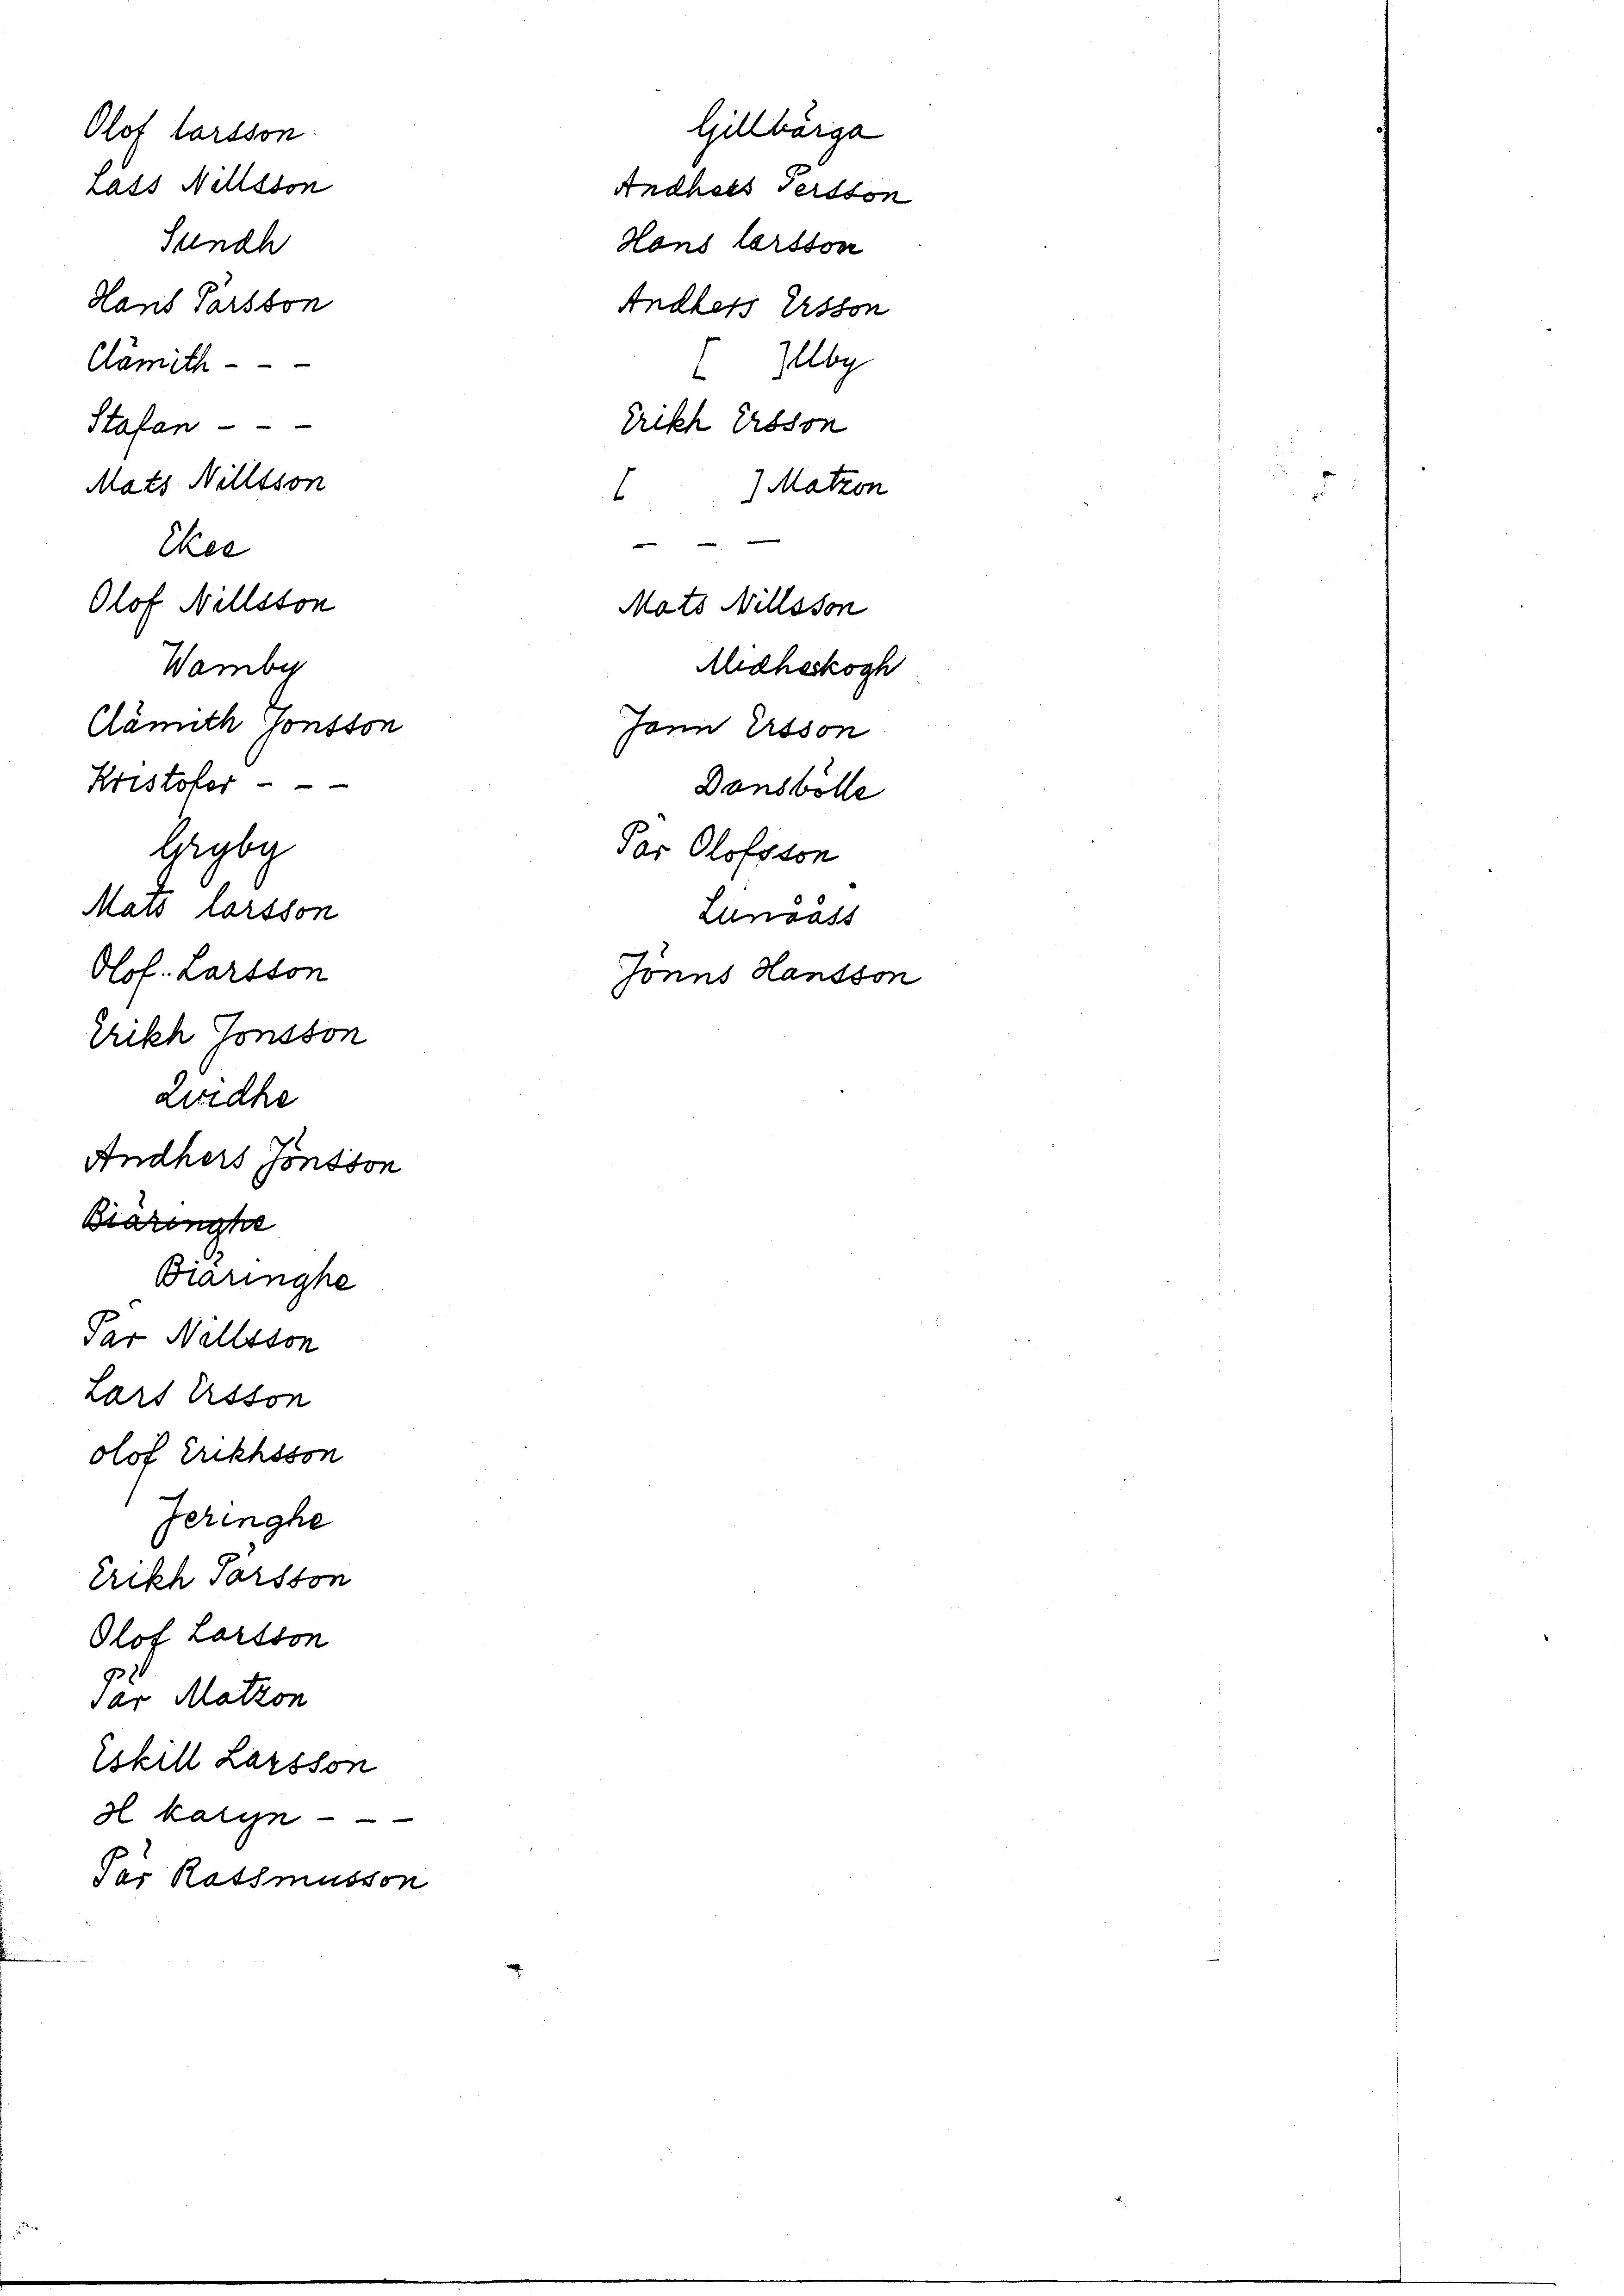 Olof larsson
Lass Nillsson
Sundh
Hans Pärsson
Clämith - - -
Stafan - - -
Mats Nillsson
Ekee
Olof Nillsson
Wamby
Clämith Jonsson
Kristofer - - -
Gryby
Mats larsson
Olof Larsson
Erikh Jonsson
Andhers Jönsson
Biäringhe
Biäringhe
Pär Nillsson
Lars Ersson
olof Erikhsson
Jeringhe
Erikh Pärsson
Olof Larsson
Pär Matzon
Eskill Larsson
H karyn - - -
Pär Rassmusson
Gillbärga
Andhers Persson
Hans larsson
Andhers Ersson
[ ]llby
Erikh Ersson
[ ] Matzon
- - -
Mats Nillsson
Midheskogh
Jann Ersson
Dansbölle
Pär Olofsson
Lundåss
Jönns Hansson